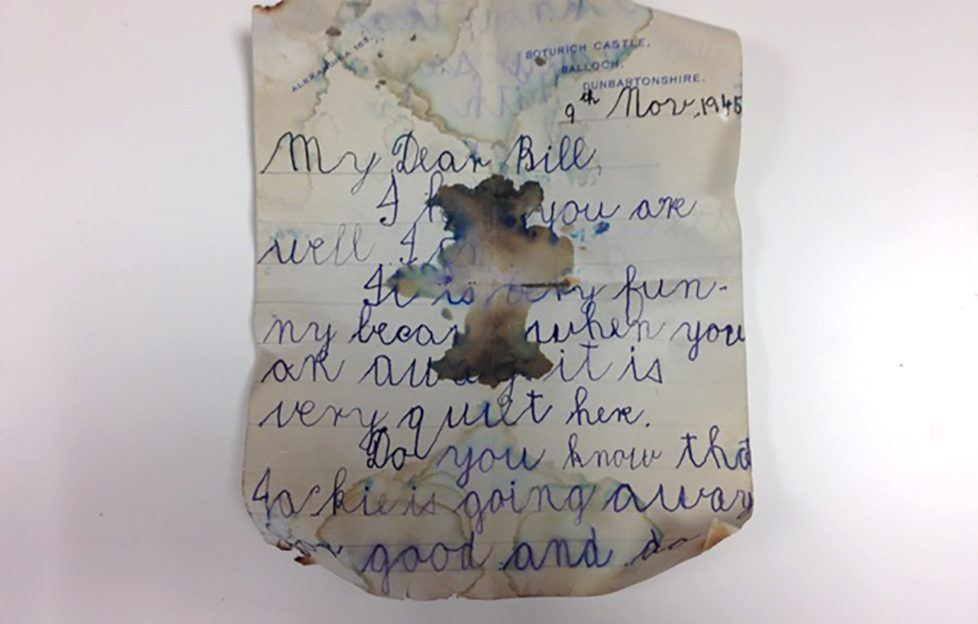 ALEXANDRIA 165.
BOTURICH CASTLE,
BALLOCH,
DUNBARTONSHIRE.
9th Nov, 1945
My Dear Bill,
I you are
well I
It is very fun-
ny becau when you
are away it is
very quiet here.
Do you know that
Jackie is going away
for good and do